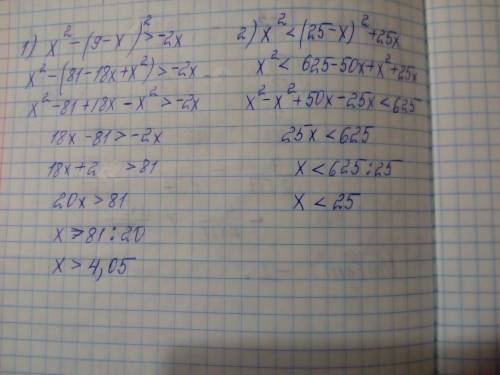 1) x² - (9 - x)² > -2x
x² - (81 - 18x + x²) > -2x
x² - 81 + 18x - x² > -2x
18x - 81 > -2x
18x + 2 > 81
20x > 81
x > 81 : 20
x > 4,05
2) x² < (25 - x)² + 25x
x² < 625 - 50x + x² + 25x
x² - x² + 50x - 25x < 625
25x < 625
x < 625 : 25
x < 25